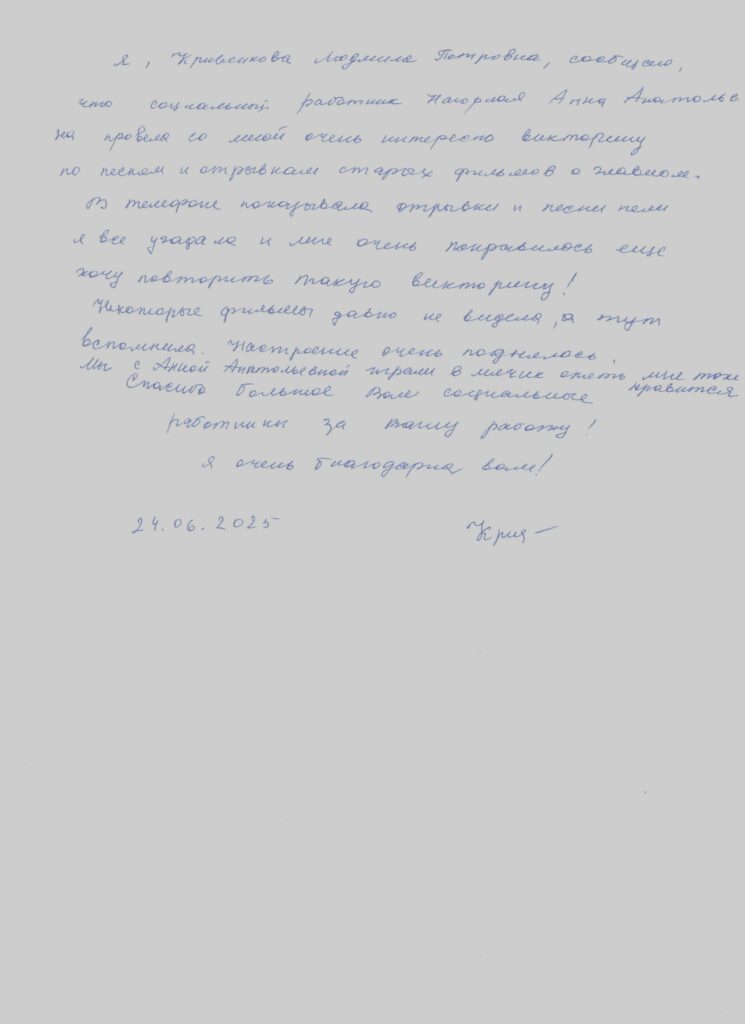 Я, Кривенкова Людмила Петровна, сообщаю,
что социальный работник Нагорная Анна Анатольев
на провела со мной очень интересно викторину
по песням и отрывкам старых фильмов о главном.
В телефоне показывала отрывки и песни пели
я все угадала и мне очень понравилось еще
хочу повторить такую викторину!
Некоторые фильмы давно не видела, а тут
вспомнила. Настроение очень поднялось.
Мы с Анной Анатольевной играли в мячик опять мне тоже
нравится
Спасибо большое Вам социальные
работники за вашу работу!
Я очень благодарна вам!
24.06.2025